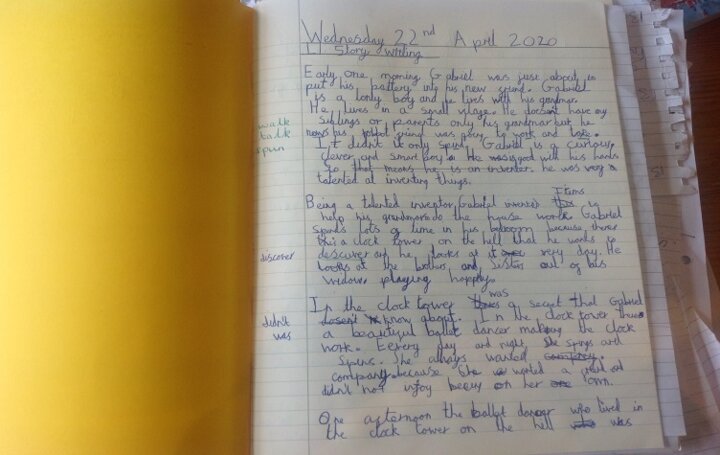 Wednesday 22nd April 2020
LI Story writing
Early one morning Gabriel was just about to
put his battery into his new
Gabriel
is a lonly boy and he lives with his grandmar.
He lives in a small vilage. He doesent have any
walk
siblings or parents only his grandmar but he
talk
his robot was going to work and
spun
It didn't it only spins. Gabriel is a curious,
clever and smart boy. He is good with his hands
so that means he is an inventer. he was very
talented at inventing things.
Items
Being a talented inventor Gabriel invented to
help his grandmar do the house work. Gabriel
spends lots of time in his bedroom because theres
a clock tower on the hell that he wants to
discover
descuver so he looks at it very day. He
looks at the brothers and sisters out of his
window playing happley.
was
In the clock tower a secret that Gabriel
didn't
dosent know about. In the clock tower
was
a beautiful ballet dancer making the clock
work. Every day and night, she spings and
spins. She always wanted
company because she wanted a and
didn't not injoy beeing on her own.
One afternoon the ballet dancer who lived in
the clock tower on the hell was